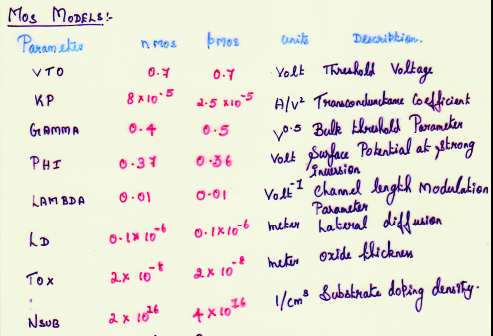 MOS MODELS:-
Parameter nMOS pMOS units Description.
VTO 0.7 0.7 Volt Threshold Voltage
KP 8×10⁻⁵ 2.5×10⁻⁵ A/V² Transconductance Coefficient
GAMMA 0.4 0.5 V⁰·⁵ Bulk threshold Parameter
PHI 0.37 0.36 Volt Surface Potential at strong
inversion
LAMBDA 0.01 0.01 Volt⁻¹ Channel length Modulation
Parameter
LD 0.1×10⁻⁶ 0.1×10⁻⁶ meter Lateral diffusion
TOX 2×10⁻⁸ 2×10⁻⁸ meter oxide thickness
NSUB 2×10¹⁶ 4×10¹⁶ 1/cm³ Substrate doping density.